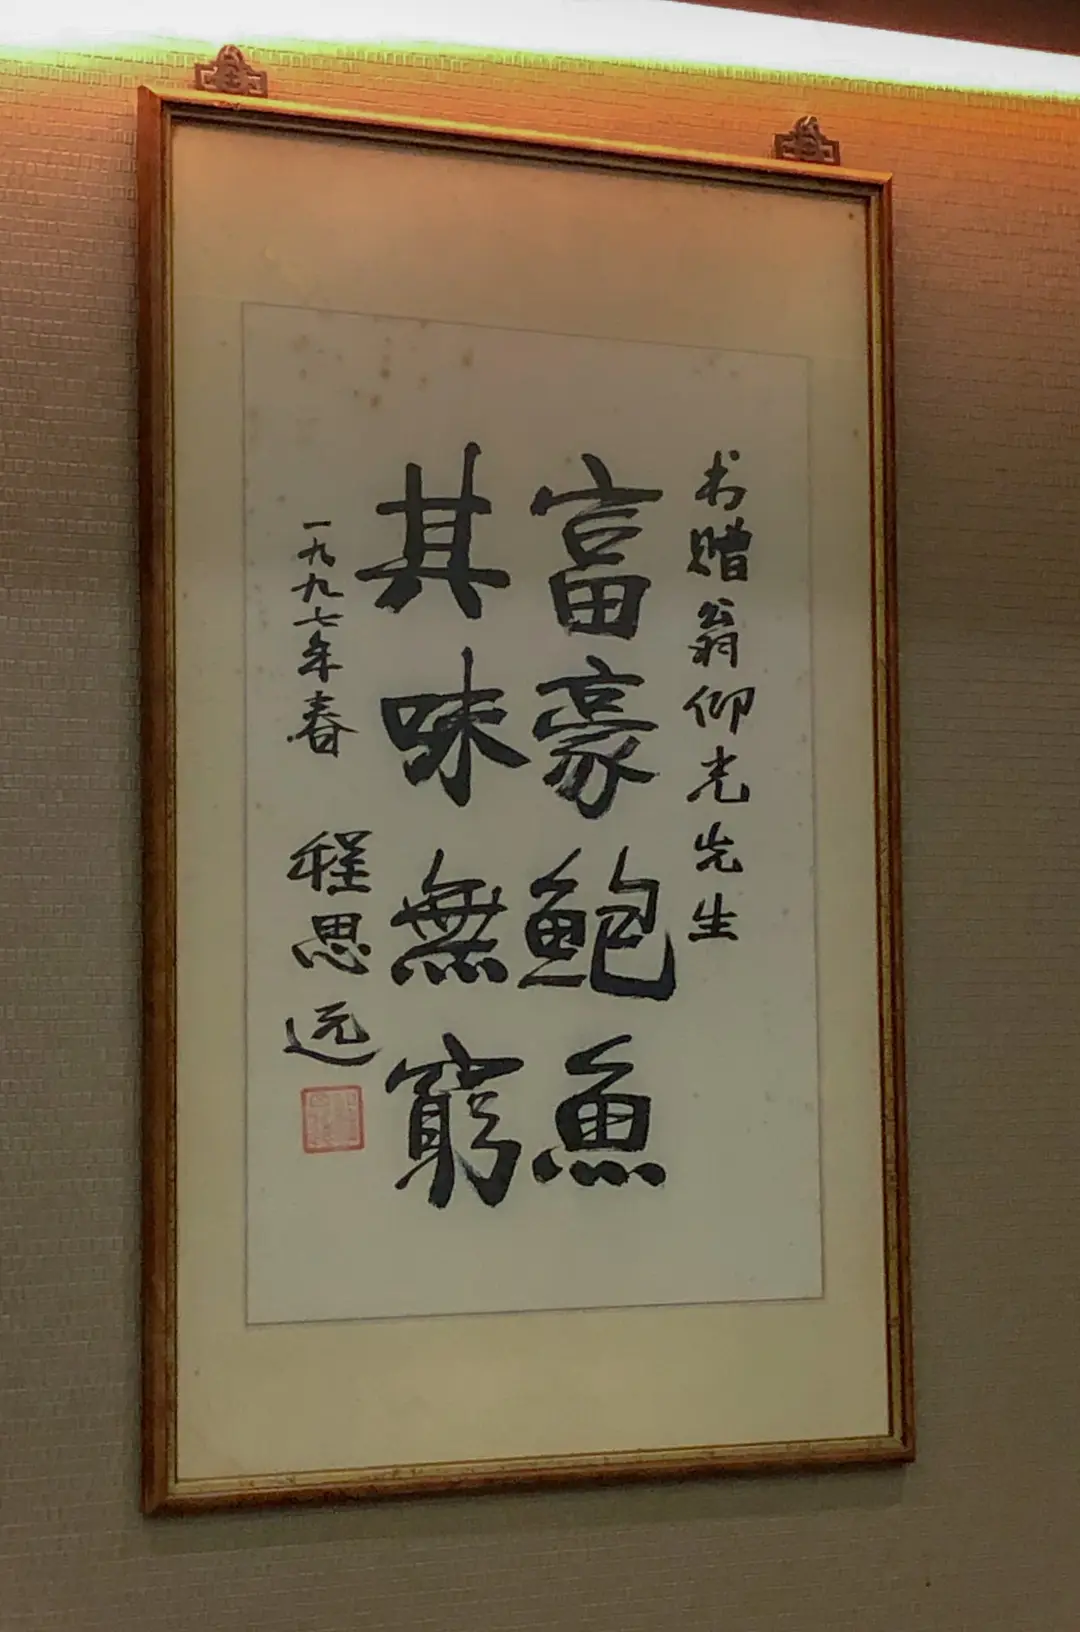 书赠翁仰光先生
富豪鲍鱼
其味無窮
一九九七年春 程思远